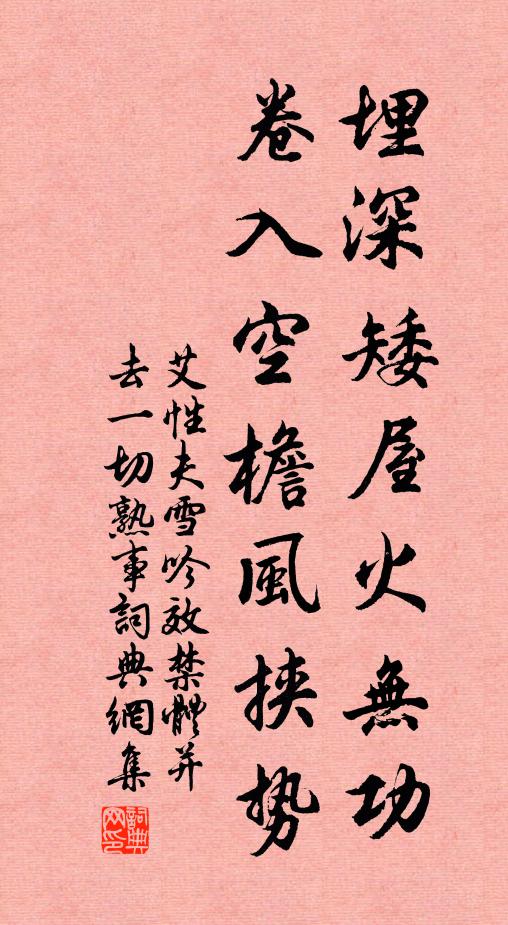 埋深矮屋火無功
卷入空檐風挾势
艾性夫雪吟效禁體并
去一切熟事詞典網集
詞典
网印